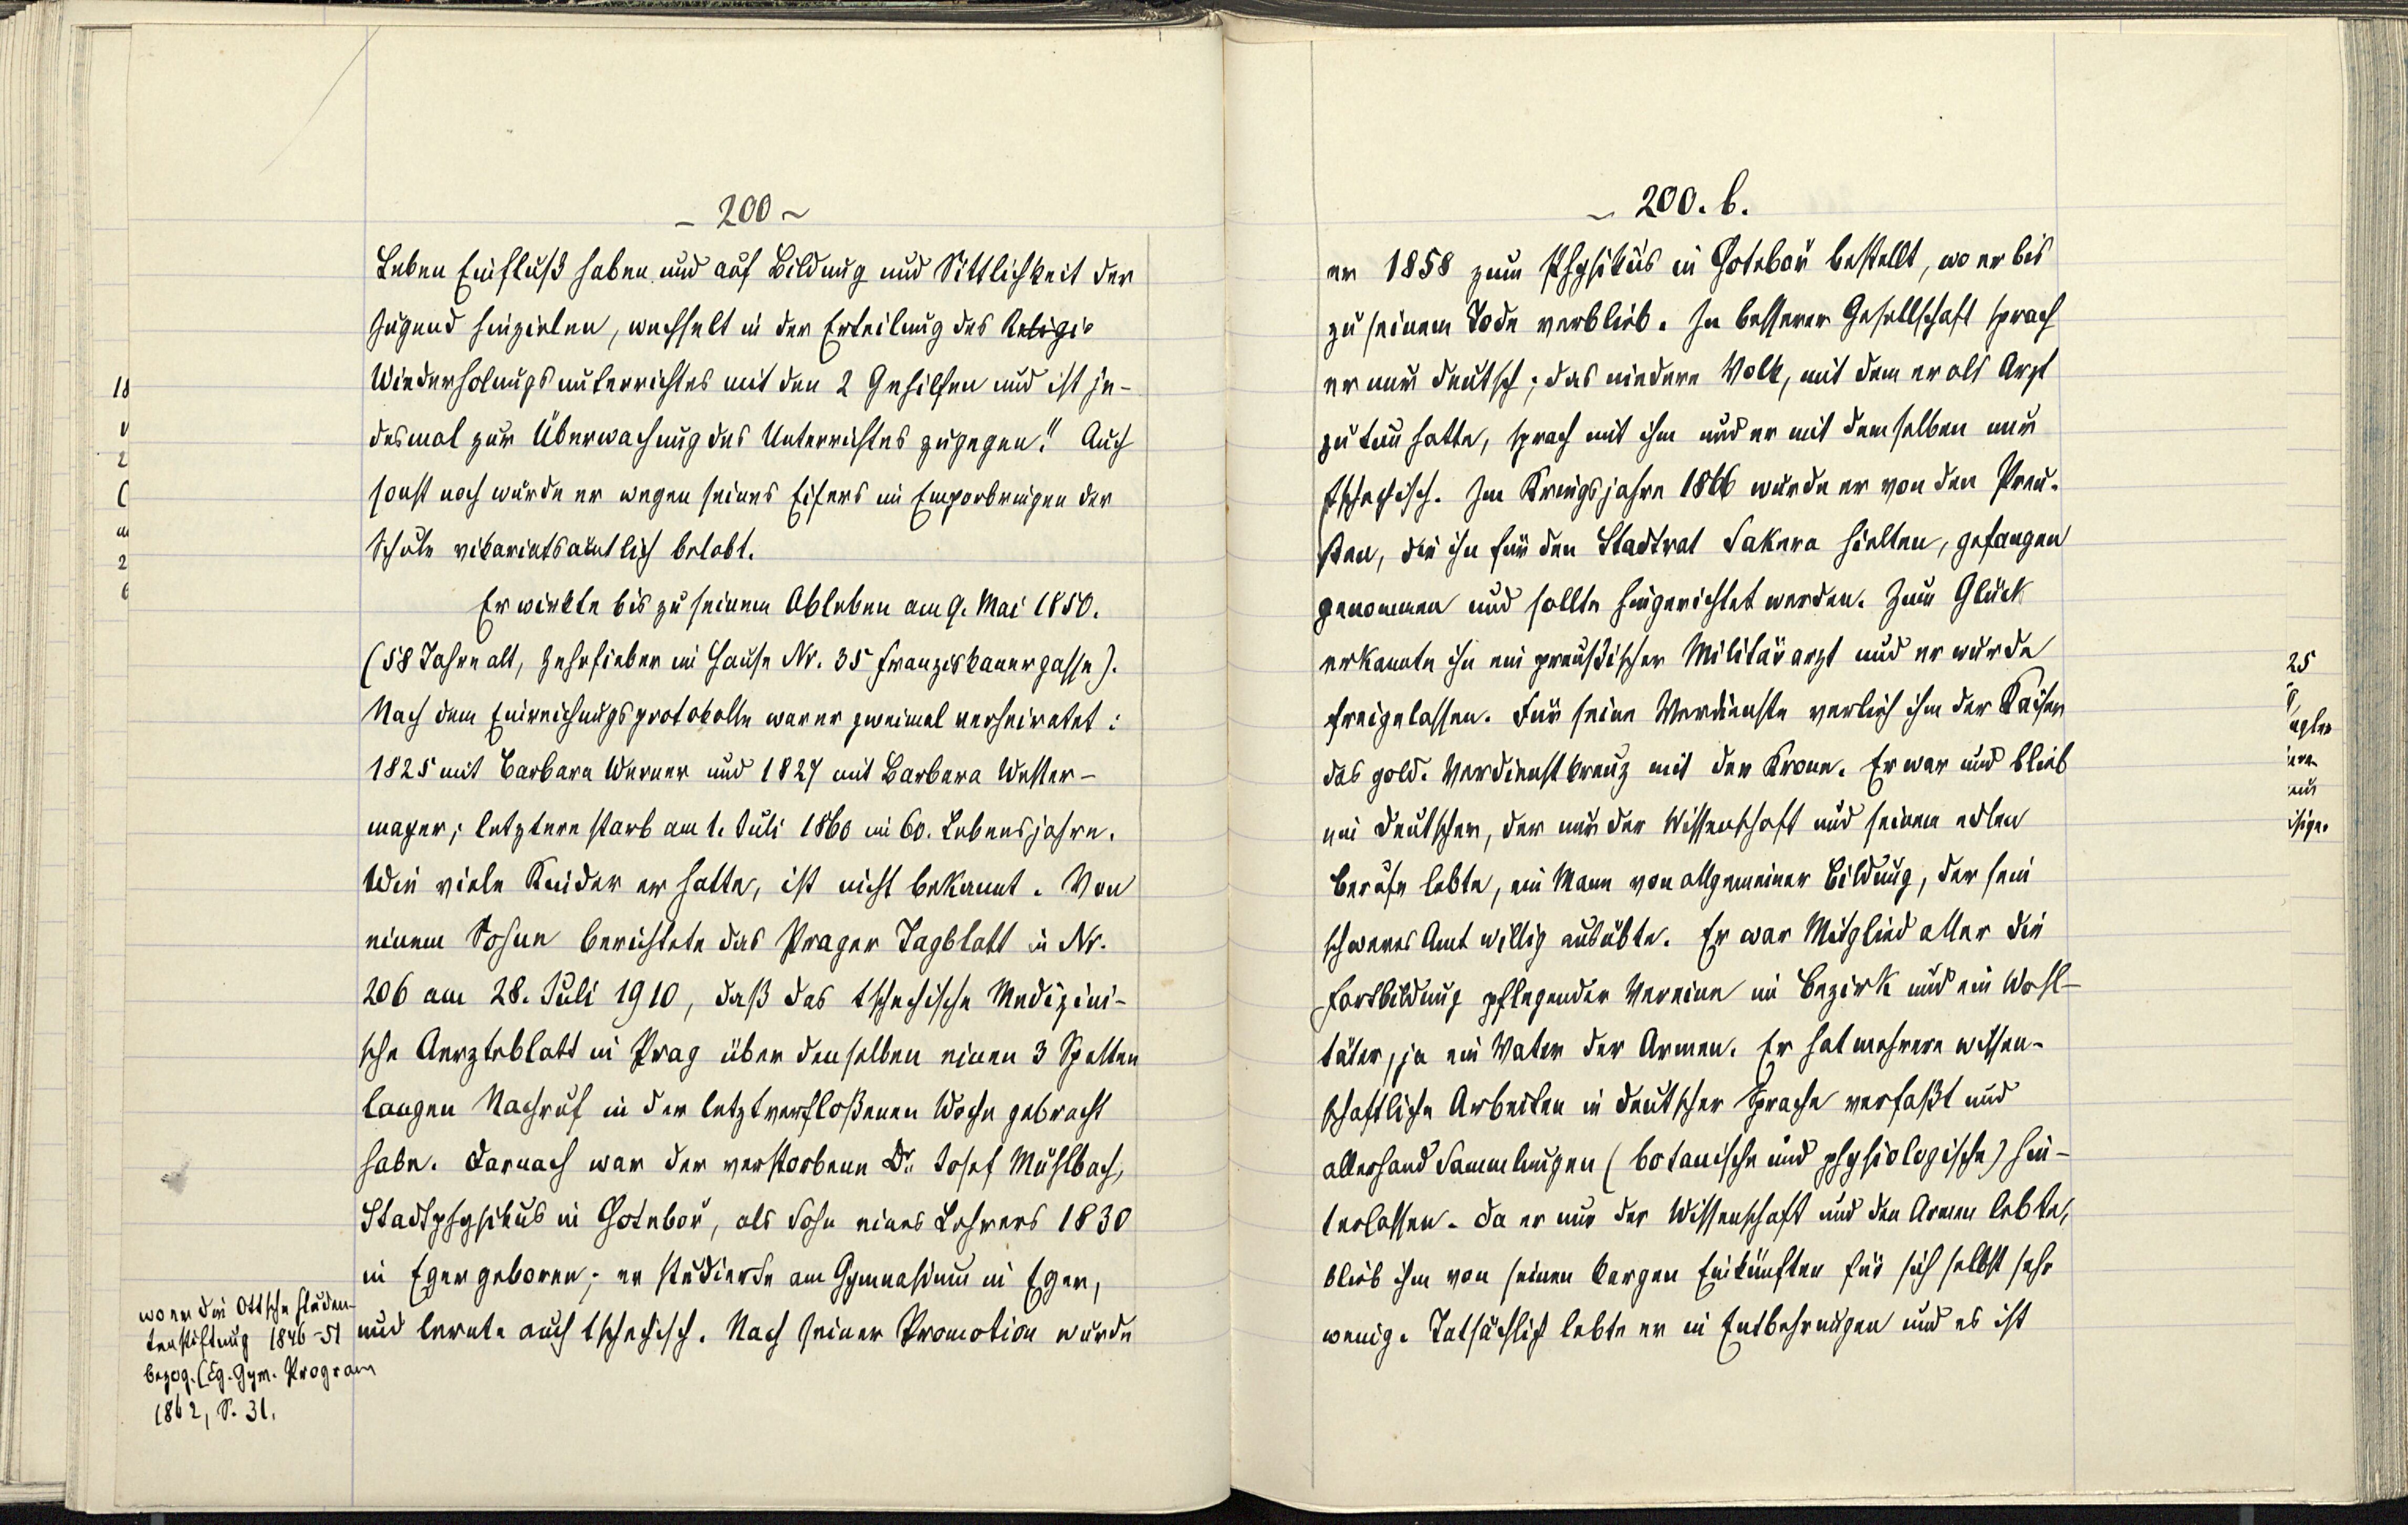 - 200 ~
Leben Einfluß haben und auf Bildung und Sittlichkeit der
Jugend hinzielen, wechselt in der Erteilung des Religio
Wiederholungsunterrichtes mit den 2 Gehilfen und ist je-
desmal zur Überwachung des Unterrichtes zugegen." Auch
sonst noch wurde er wegen seines Eifers im Emporbringen der
Schule vikariatsamtlich belobt.
Er wirkte bis zu seinem Ableben am 9. Mai 1850.
(58 Jahre alt, Zehrfieber im Hause Nr. 35 Franziskanergasse).
Nach dem Einreichungsprotokolle war er zweimal verheiratet:
1825 mit Barbara Werner und 1827 mit Barbara Wester-
mayer; letztere starb am 1. Juli 1860 im 60. Lebensjahre.
Wie viele Kinder er hatte, ist nicht bekannt. Von
einem Sohne berichtete das Prager Tagblatt in Nr.
206 am 28. Juli 1910, daß das tschechische Medizini-
sche Aerzteblatt in Prag über denselben einen 3 Spalten
langen Nachruf in der letztverfloßenen Woche gebracht
habe. Darnach war der verstorbene Dr. Josef Mühlbach,
Stadtphysikus in Goteboř, als Sohn eines Lehrers 1830
in Eger geboren; er studierte am Gymnasium in Eger,
wo er die Ottsche Studen-
tenstiftung 1846-51
bezog. (Eg. Gym. Program
1862, S. 31.
und lernte auch tschechisch. Nach seiner Promotion wurde
~ 200. b.
er 1858 zum Physikus in Gotebor bestellt, wo er bis
zu seinem Tode verblieb. In besserer Gesellschaft sprach
er nur deutsch; das niedere Volk, mit dem er als Arzt
zu tun hatte, sprach mit ihm und er mit demselben nur
tschechisch. Im Kriegsjahre 1866 wurde er von den Preu-
ßen, die ihn für den Stadtrat Sakera hielten, gefangen
genommen und sollte hingerichtet werden. Zum Glück
erkannte ihn ein preußischer Militärarzt und er wurde
freigelassen. Für seine Verdienste verlieh ihm der Kaiser
das gold. Verdienstkreuz mit der Krone. Er war und blieb
ein Deutscher, der nur der Wissenschaft und seinem edlen
Berufe lebte, ein Mann von allgemeiner Bildung, der sein
schweres Amt willig ausübte. Er war Mitglied aller die
Fortbildung pflegender Vereine im Bezirk und ein Wohl-
täter, ja ein Vater der Armen. Er hat mehrere wissen-
schaftliche Arbeiten in deutscher Sprache verfaßt und
allerhand Sammlungen (botanische und physiologische) hin-
terlassen. Da er nur der Wissenschaft und den Armen lebte,
blieb ihm von seinen kargen Einkünften für sich selbst sehr
wenig. Tatsächlich lebte er in Entbehrungen und es ist